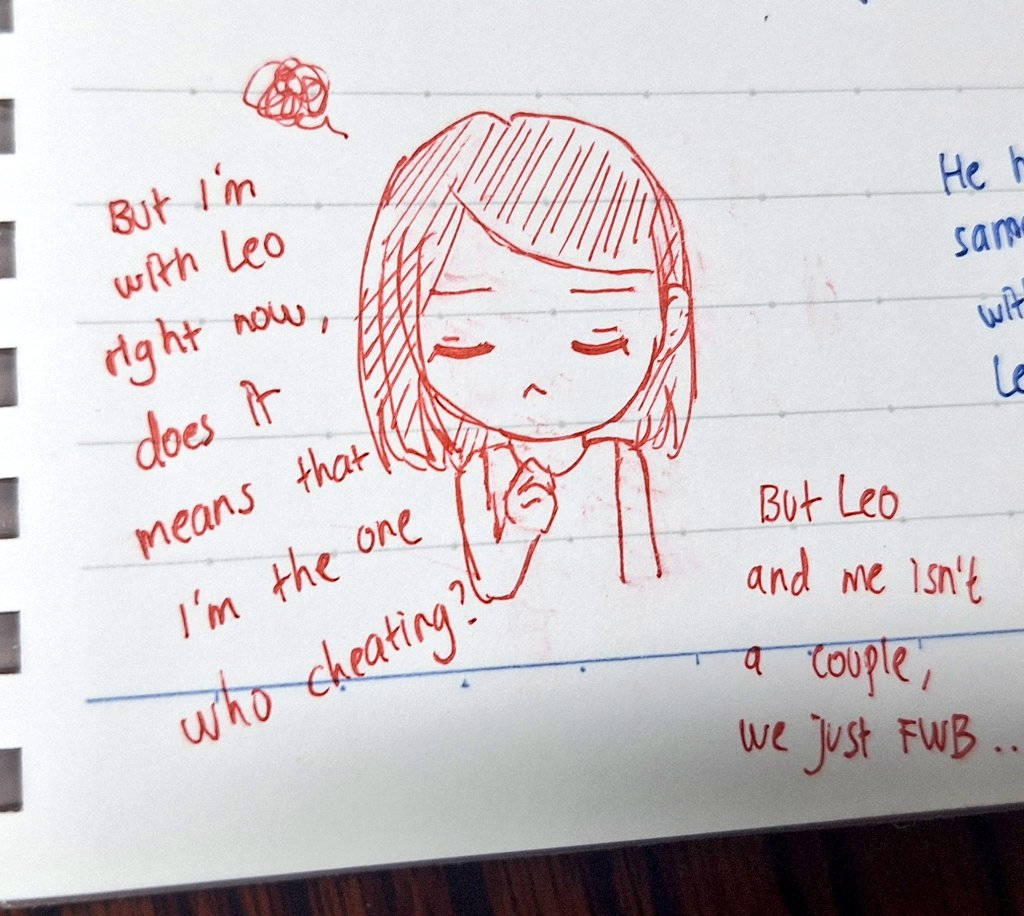 But I'm
with Leo
right now,
does it
means that
I'm the one
who cheating?
He
with
But Leo
and me isn't
a couple,
we just FWB ..